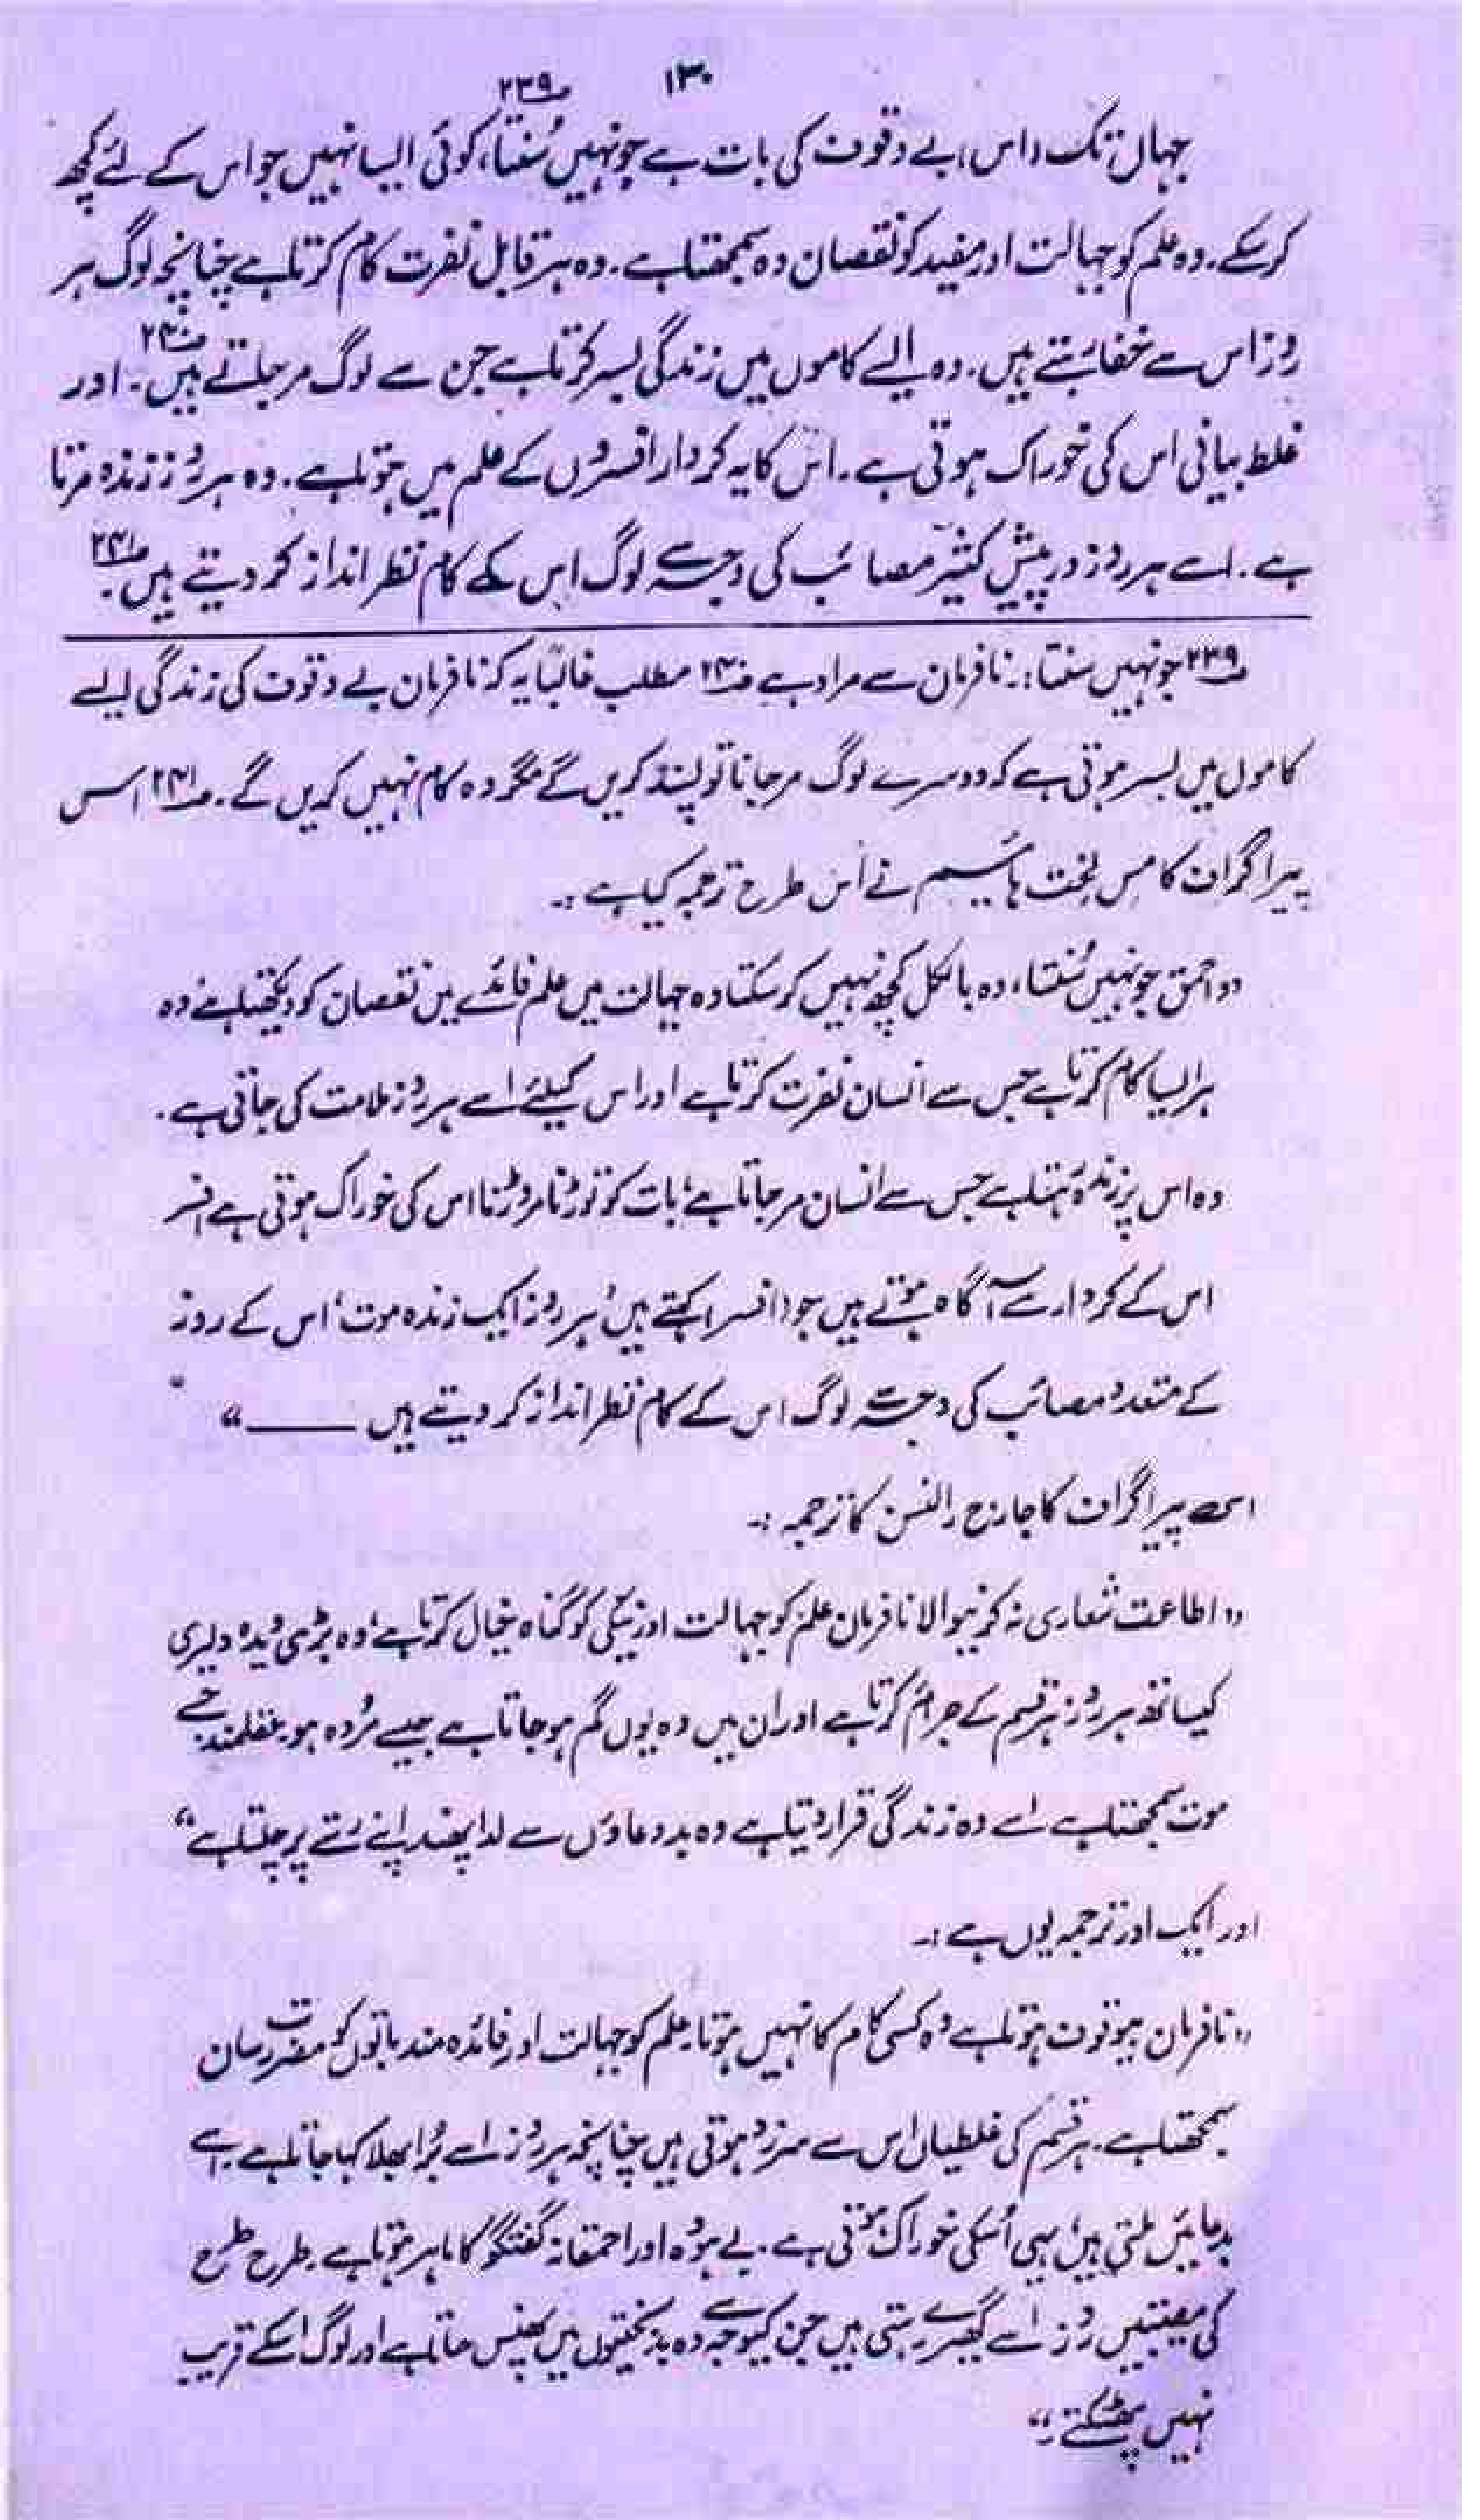 ۱۳۰
جہاں تک (اس) بے وقوف کی بات ہے جو نہیں سُنتا،۲۳۹ کوئی ایسا نہیں جو اس کے لئے کچھ
کرسکے۔ وہ علم کو جہالت اور مفید کو نقصان دہ سمجھتا ہے۔ وہ ہر قابل نفرت کام کرتا ہے چنانچہ لوگ ہر
روز اس سے خفا رہتے ہیں۔ وہ ایسے کاموں میں زندگی بسر کرتا ہے جن سے لوگ مر جاتے ہیں۲۴۰۔ اور
غلط بیانی اس کی خوراک ہوتی ہے۔ اس کا یہ کردار افسروں کے علم میں ہوتا ہے۔ وہ ہر روز زندہ مرتا
ہے۔ اسے ہر روز درپیش کثیر مصائب کی وجہ سے لوگ اس کے کام نظر انداز کر دیتے ہیں۔۲۴۱
۲۳۹ جو نہیں سنتا:۔ نافرمان سے مراد ہے ۲۴۰ مطلب غالباً یہ کہ نافرمان بے وقوف کی زندگی ایسے
کاموں میں بسر ہوتی ہے کہ دوسرے لوگ مر جانا تو پسند کریں گے مگر وہ کام نہیں کریں گے۔ ۲۴۱ اس
پیراگراف کا مس لخت ہائیم نے اس طرح ترجمہ کیا ہے:۔
"احمق جو نہیں سُنتا، وہ بالکل کچھ نہیں کر سکتا وہ جہالت میں علم فائدے میں نقصان کو دیکھتا ہے، وہ
ہر ایسا کام کرتا ہے جس سے انسان نفرت کرتا ہے اور اس کیلئے اسے ہر روز ملامت کی جاتی ہے۔
وہ اس پر زندہ رہتا ہے جس سے انسان مر جاتا ہے، بات کو توڑنا مروڑنا اس کی خوراک ہوتی ہے افسر
اس کے کردار سے آگاہ ہوتے ہیں جو (افسر) کہتے ہیں، ہر روز ایک زندہ موت، اس کے روز
کے متعدد مصائب کی وجہ سے لوگ اس کے کام نظر انداز کر دیتے ہیں ——"
اسی پیراگراف کا جارج رالنسن کا ترجمہ:۔
"اطاعت شعاری نہ کرنیوالا نافرمان علم کو جہالت اور نیکی کو گناہ خیال کرتا ہے، وہ بڑی دیدہ دلیری
کیساتھ ہر روز ہر قسم کے جرائم کرتا ہے اور ان میں وہ یوں گم ہو جاتا ہے جیسے مُردہ ہو۔ عقلمند جسے
موت سمجھتا ہے اسے وہ زندگی قرار دیتا ہے وہ بددعاؤں سے لدا پھندا اپنے رستے پر چلتا ہے"
اور ایک اور ترجمہ یوں ہے:۔
"نافرمان بیوقوف ہوتا ہے وہ کسی کام کا نہیں ہوتا۔ علم کو جہالت اور فائدہ مند باتوں کو مضرت رسان
سمجھتا ہے۔ ہر قسم کی غلطیاں اس سے سرزد ہوتی ہیں چنانچہ ہر روز اسے بُرا بھلا کہا جاتا ہے۔ اسے
بدعائیں ملتی ہیں، یہی اُسکی خوراک ہوتی ہے۔ بے ہودہ اور احمقانہ گفتگو کا ماہر ہوتا ہے۔ طرح طرح
کی مصیبتیں روز اسے گھیرے رہتی ہیں جن کیوجہ سے وہ بدبختیوں میں پھنس جاتا ہے اور لوگ اسکے قریب
نہیں پھٹکتے۔"